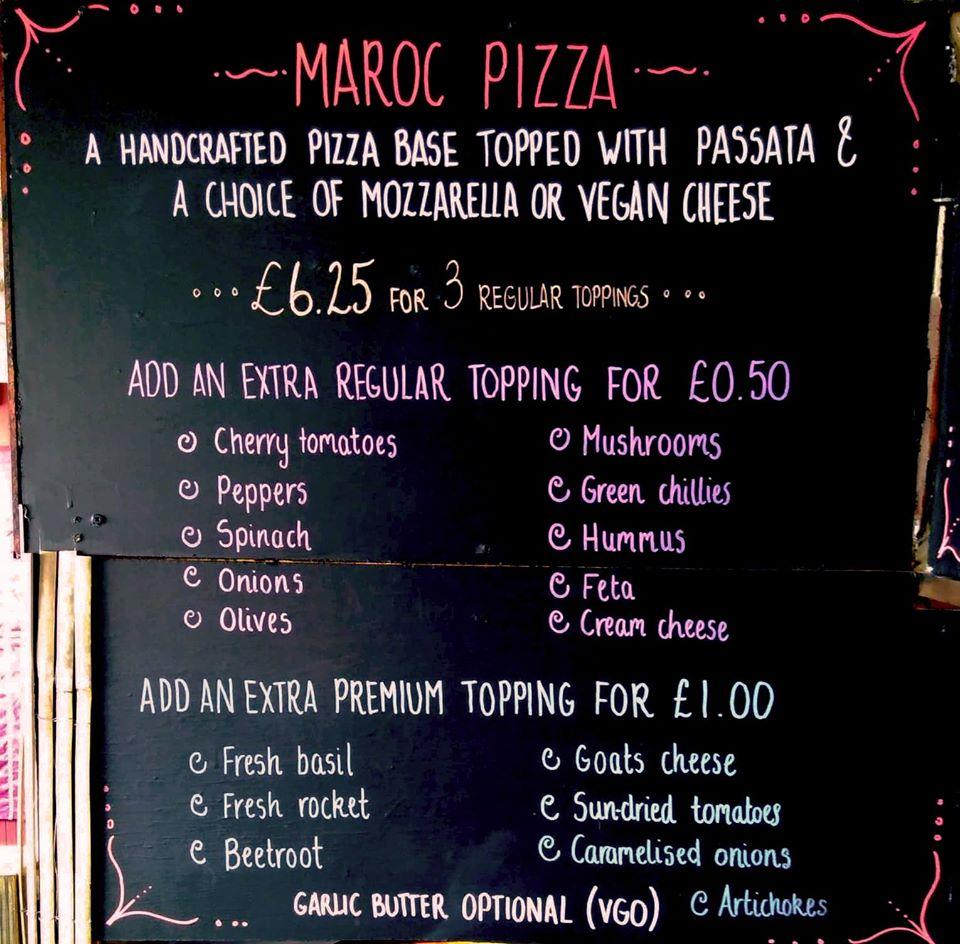 MAROC PIZZA
A HANDCRAFTED PIZZA BASE TOPPED WITH PASSATA &
A CHOICE OF MOZZARELLA OR VEGAN CHEESE
£6.25 FOR 3 REGULAR TOPPINGS
ADD AN EXTRA REGULAR TOPPING FOR £0.50
Cherry tomatoes
Peppers
Spinach
Onions
Olives
Mushrooms
Green chillies
Hummus
Feta
Cream cheese
ADD AN EXTRA PREMIUM TOPPING FOR £1.00
Fresh basil
Fresh rocket
Beetroot
Goats cheese
Sun-dried tomatoes
Caramelised onions
Artichokes
GARLIC BUTTER OPTIONAL (VGO)